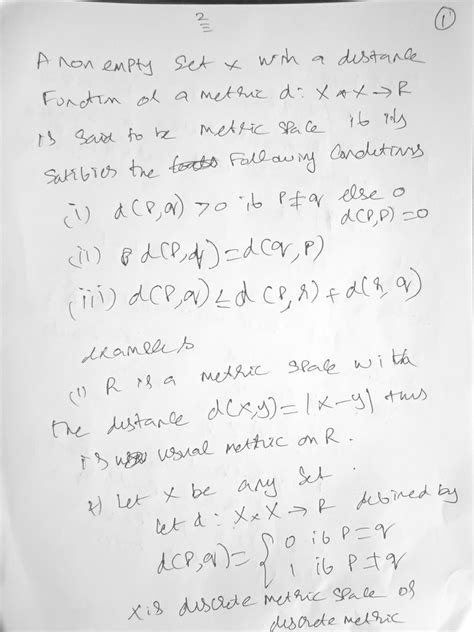 2
1
A non empty set x with a distance
Function od a metric d: X x X → R
is said to be metric space ib its
satisbies the Following Conditions
(i) d(p,q) > 0 ib p≠q else 0
d(p,p) = 0
(ii) d(p,q) = d(q,p)
(iii) d(p,q) ≤ d(p,r) + d(r,q)
examples
(1) R is a metric space with
the distance d(x,y) = |x-y| this
is usual metric on R.
2) Let X be any set.
let d: X x X → R debined by
d(p,q) = { 0 ib p=q
1 ib p≠q
X is discrete metric space or
discrete metric